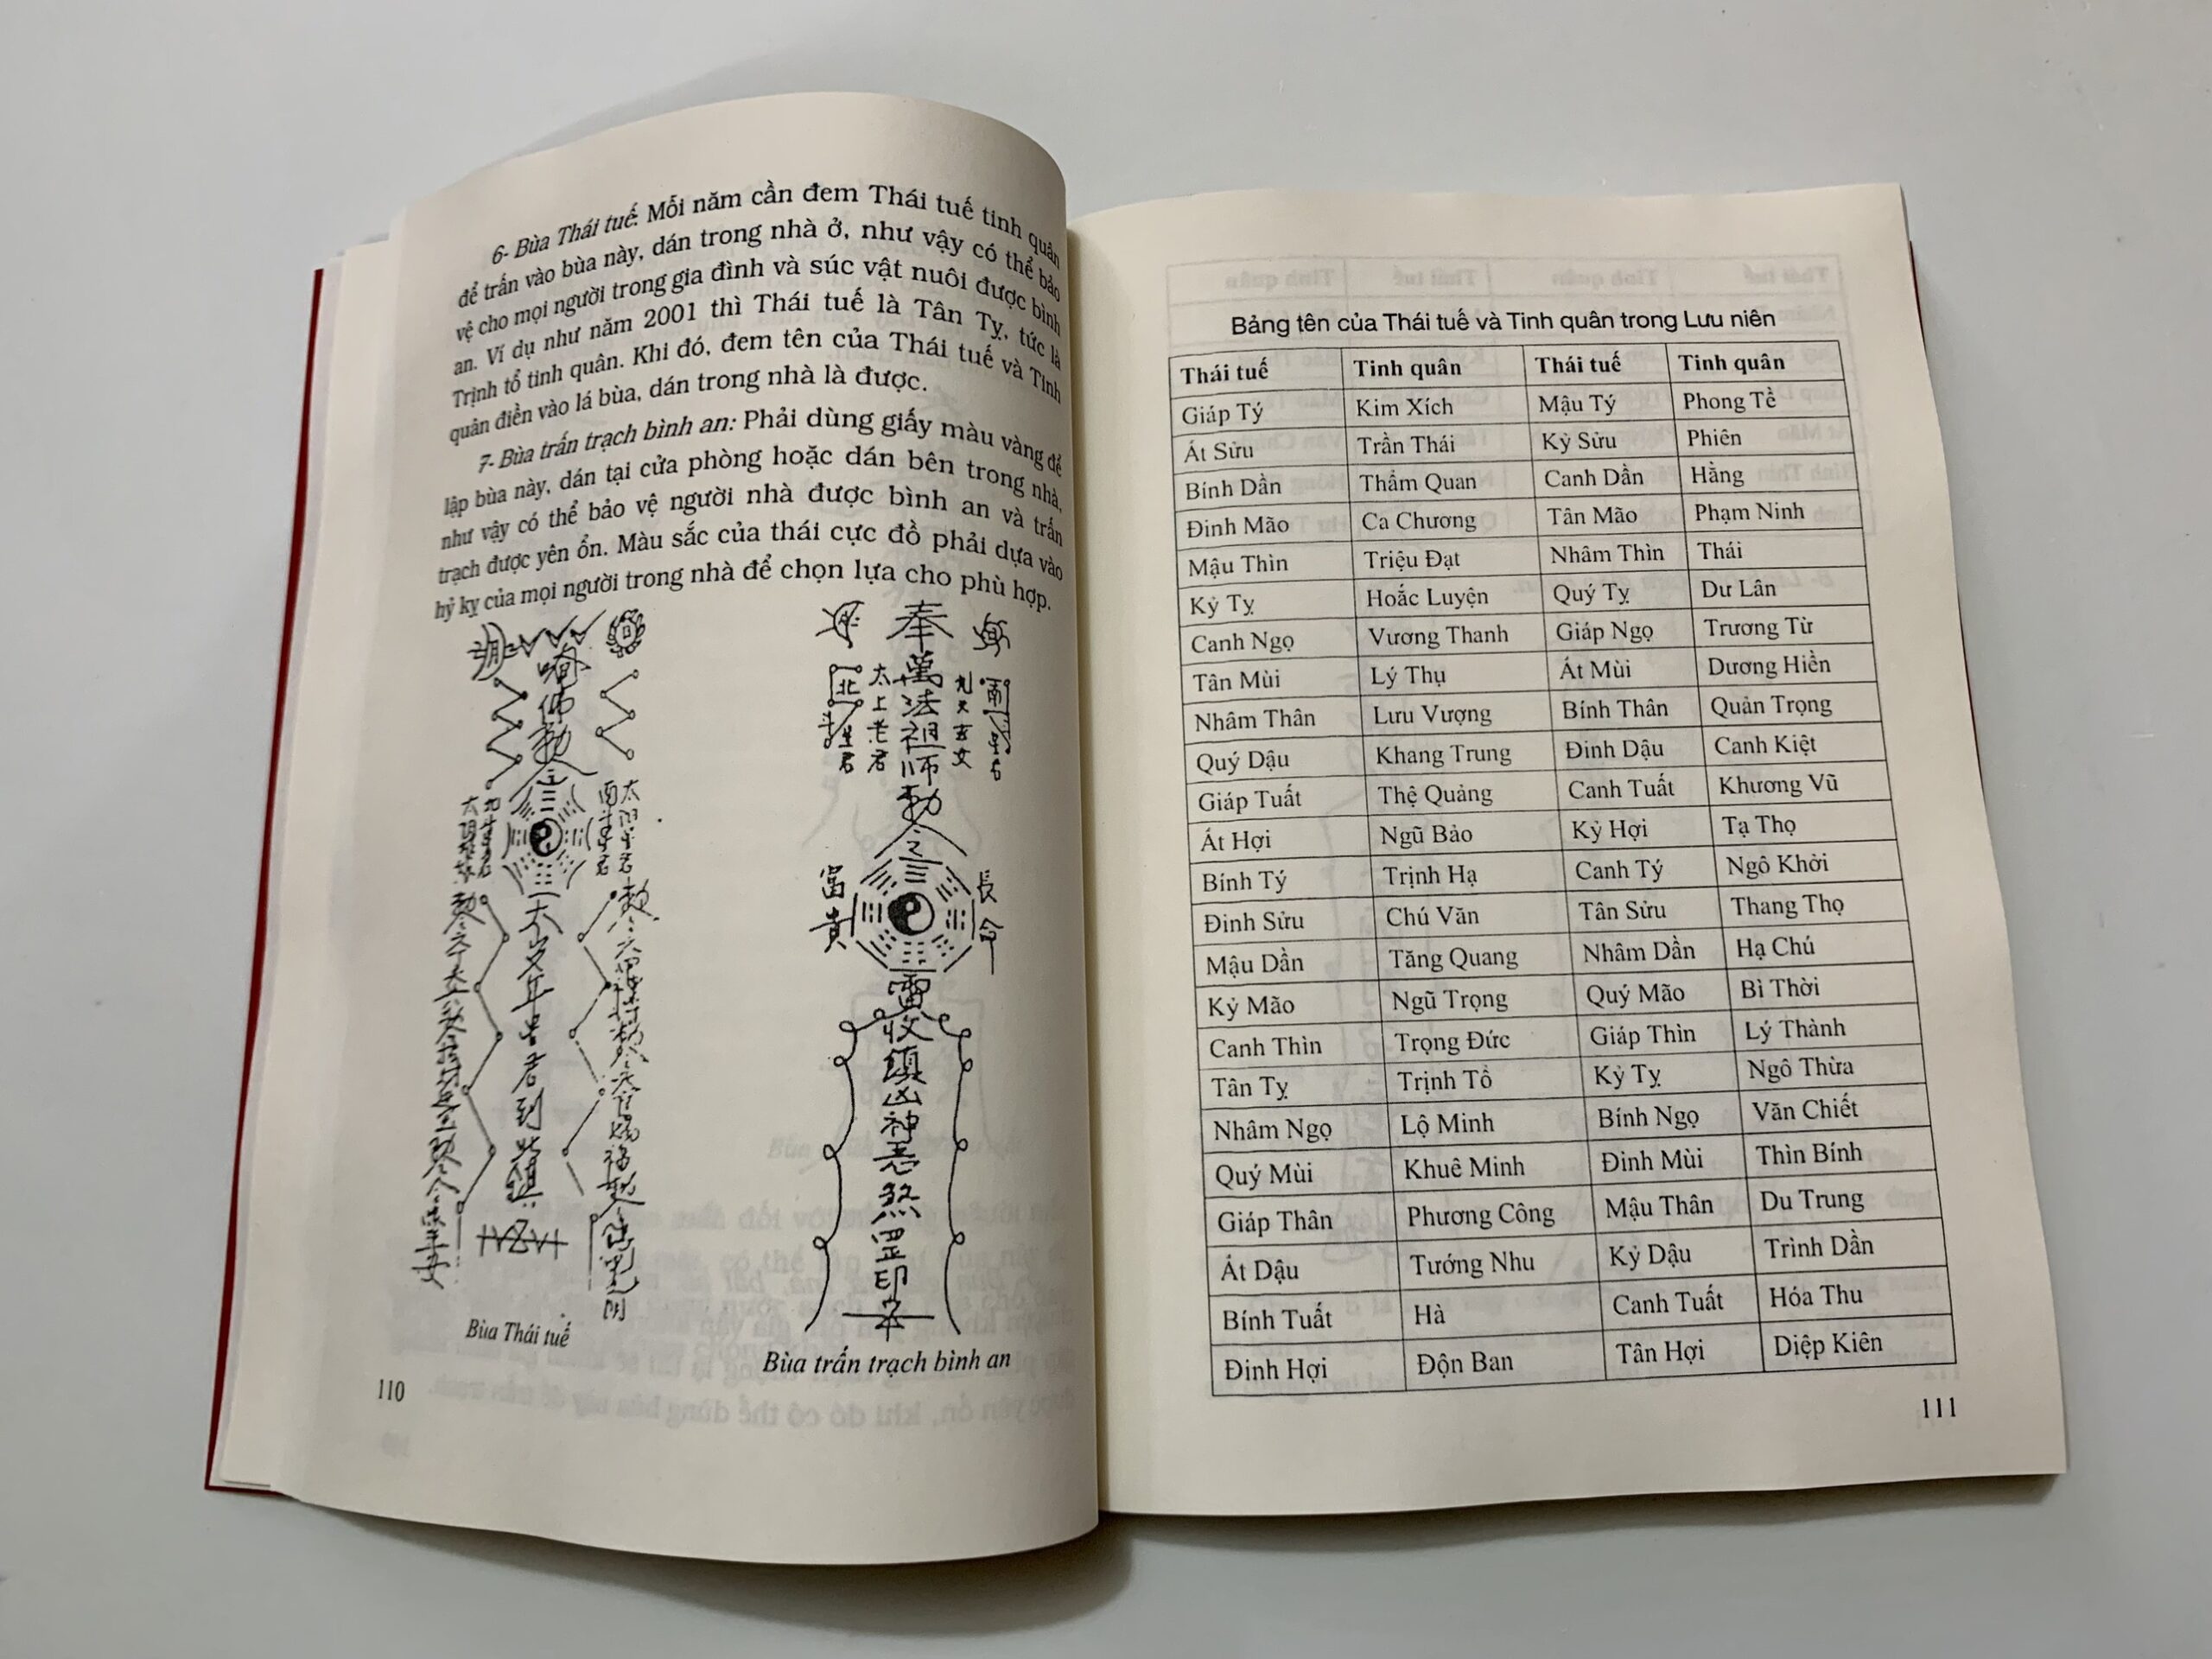 6- Bùa Thái tuế: Mỗi năm cần đem Thái tuế tinh quân
để trấn vào bùa này, dán trong nhà ở, như vậy có thể bảo
vệ cho mọi người trong gia đình và súc vật nuôi được bình
an. Ví dụ như năm 2001 thì Thái tuế là Tân Tỵ, tức là
Trịnh tổ tinh quân. Khi đó, đem tên của Thái tuế và Tinh
quân điền vào lá bùa, dán trong nhà là được.
7- Bùa trấn trạch bình an: Phải dùng giấy màu vàng để
lập bùa này, dán tại cửa phòng hoặc dán bên trong nhà,
như vậy có thể bảo vệ người nhà được bình an và trấn
trạch được yên ổn. Màu sắc của thái cực đồ phải dựa vào
hỷ kỵ của mọi người trong nhà để chọn lựa cho phù hợp.
佛
勅
令
奉
萬法祖師
勅令
太上老君
九天玄女
富貴
長命
雷
收
鎮
凶
神
惡
煞
罡
印
Bùa Thái tuế
Bùa trấn trạch bình an
110
Bảng tên của Thái tuế và Tinh quân trong Lưu niên
Thái tuế Tinh quân Thái tuế Tinh quân
Giáp Tý Kim Xích Mậu Tý Phong Tề
Ất Sửu Trần Thái Kỷ Sửu Phiên
Bính Dần Thẩm Quan Canh Dần Hằng
Đinh Mão Ca Chương Tân Mão Phạm Ninh
Mậu Thìn Triệu Đạt Nhâm Thìn Thái
Kỷ Tỵ Hoắc Luyện Quý Tỵ Dư Lân
Canh Ngọ Vương Thanh Giáp Ngọ Trương Từ
Tân Mùi Lý Thụ Ất Mùi Dương Hiền
Nhâm Thân Lưu Vượng Bính Thân Quản Trọng
Quý Dậu Khang Trung Đinh Dậu Canh Kiệt
Giáp Tuất Thệ Quảng Canh Tuất Khương Vũ
Ất Hợi Ngũ Bảo Kỷ Hợi Tạ Thọ
Bính Tý Trịnh Hạ Canh Tý Ngô Khởi
Đinh Sửu Chú Văn Tân Sửu Thang Thọ
Mậu Dần Tăng Quang Nhâm Dần Hạ Chú
Kỷ Mão Ngũ Trọng Quý Mão Bì Thời
Canh Thìn Trọng Đức Giáp Thìn Lý Thành
Tân Tỵ Trịnh Tổ Kỷ Tỵ Ngô Thừa
Nhâm Ngọ Lộ Minh Bính Ngọ Văn Chiết
Quý Mùi Khuê Minh Đinh Mùi Thìn Bính
Giáp Thân Phương Công Mậu Thân Du Trung
Ất Dậu Tướng Nhu Kỷ Dậu Trình Dần
Bính Tuất Hà Canh Tuất Hóa Thu
Đinh Hợi Độn Ban Tân Hợi Diệp Kiên
111